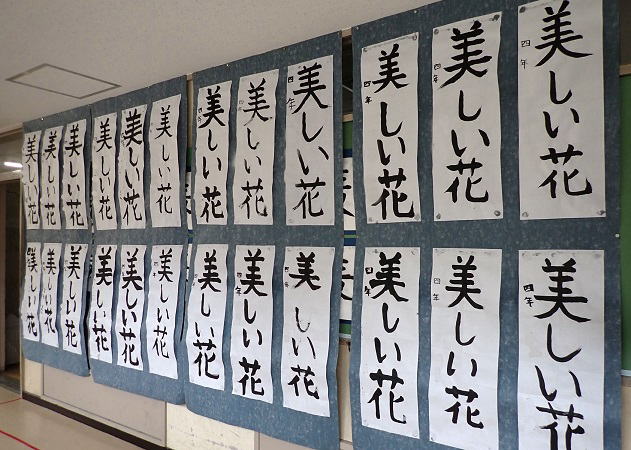 美しい花
四年
美しい花
四年
美しい花
四年
美しい花
四年
美しい花
四年
美しい花
四年
美しい花
美しい花
美しい花
美しい花
美しい花
美しい花
美しい花
四年
美しい花
四年
美しい花
四年
美しい花
四年
美しい花
四年
美しい花
美しい花
美しい花
美しい花
美しい花
美しい花
美しい花